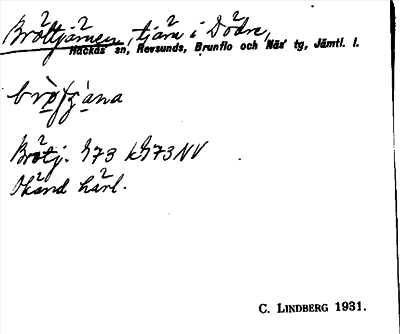 Bråttjärnen, tjärn i Dödre,
Hackås sn, Revsunds, Brunflo och Näs' tg, Jämtl. l.
Bråtj. 973 k973NV
Okänd härl.
C. LINDBERG 1931.